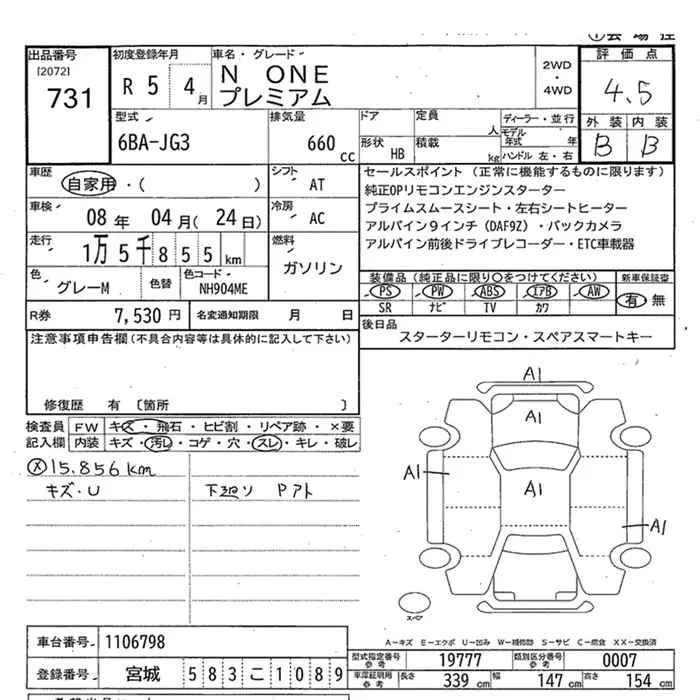 出品番号
[2072]
731
初度登録年月
R 5 4月
車名・グレード
N ONE
プレミアム
2WD
・
4WD
評価点
4.5
外装 内装
B B
型式
6BA-JG3
排気量
660 cc
ドア
定員
人
形状
HB
積載
kg
ディーラー・並行
モデル年式 年
ハンドル 左・右
車歴
自家用・( )
シフト
AT
車検
08年 04月(24日)
冷房
AC
走行
1万5千855km
燃料
ガソリン
色
グレーM
色替
色コード
NH904ME
セールスポイント(正常に機能するものに限ります)
純正OPリモコンエンジンスターター
プライムスムースシート・左右シートヒーター
アルパイン9インチ(DAF9Z)・バックカメラ
アルパイン前後ドライブレコーダー・ETC車載器
装備品(純正品に限り○をつけてください)
PS PW ABS エアB AW
SR ナビ TV カワ
新車保証書
有 無
R券
7,530円
名変通知期限 月 日
後日品
スターターリモコン・スペアスマートキー
注意事項申告欄(不具合内容等は具体的に記入して下さい)
修復歴 有 〔箇所 〕
検査員記入欄
FW キズ・飛石・ヒビ割・リペア跡・×要
内装 キズ・汚レ・コゲ・穴・スレ・キレ・破レ
X 15.856km
キズ・U
下廻ソ Pアト
A1
A1
A1
A1
A1
スペア
A-キズ E-エクボ U-凹み W-補修跡 S-サビ C-腐食 XX-交換済
車台番号
1106798
登録番号
宮城 583 こ 1089
型式指定番号 参考
19777
類別区分番号 参考
0007
車庫証明用 参考
長さ 339cm 幅 147cm 高さ 154cm